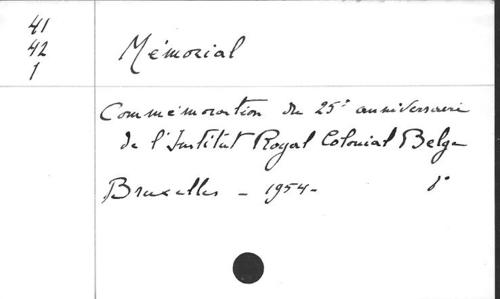 41
42
1
Mémorial
Commémoration du 25e anniversaire
de l'Institut Royal Colonial Belge
Bruxelles - 1954- 8°